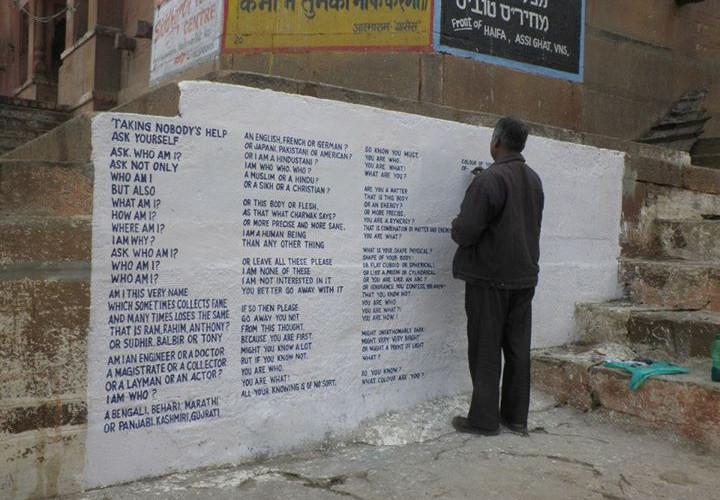 CENTRE
20
Front of HAIFA, ASSI GHAT, VNS.
TAKING NOBODY'S HELP
ASK YOURSELF
ASK. WHO AM I?
ASK NOT ONLY
WHO AM I
BUT ALSO
WHAT AM I?
HOW AM I?
WHERE AM I?
I AM WHY?
ASK WHO AM I?
WHO AM I?
WHO AM I?
AM I THIS VERY NAME
WHICH SOMETIMES COLLECTS FAME
AND MANY TIMES LOSES THE SAME
THAT IS RAM, RAHIM, ANTHONY?
OR SUDHIR. BALBIR OR TONY
AM I AN ENGINEER OR A DOCTOR
A MAGISTRATE OR A COLLECTOR
OR A LAYMAN OR AN ACTOR?
I AM WHO?
A BENGALI, BEHARI, MARATHI
OR PANJABI, KASHMIRI, GUJRATI
AN ENGLISH, FRENCH OR GERMAN?
OR JAPANI, PAKISTANI OR AMERICAN?
OR I AM A HINDUSTANI?
I AM WHO. WHO. WHO?
A MUSLIM OR A HINDU?
OR A SIKH OR A CHRISTIAN?
OR THIS BODY OR FLESH,
AS THAT WHAT CHARWAK SAYS?
OR MORE PRECISE AND MORE SANE,
I AM A HUMAN BEING
THAN ANY OTHER THING
OR LEAVE ALL THESE, PLEASE
I AM NONE OF THESE
I AM NOT INTERESTED IN IT
YOU BETTER GO AWAY WITH IT
IF SO THEN PLEASE
GO AWAY YOU NOT
FROM THIS THOUGHT.
BECAUSE YOU ARE FIRST.
MIGHT YOU KNOW A LOT
BUT IF YOU KNOW NOT.
YOU ARE WHO.
YOU ARE WHAT!
ALL YOUR KNOWING IS OF NO SORT.
SO KNOW YOU MUST.
YOU ARE WHO.
YOU ARE WHAT!
WHAT ARE YOU?
ARE YOU A MATTER
THAT IS THIS BODY
OR AN ENERGY?
OR MORE PRECISE,
YOU ARE A SYNERGY?
THAT IS COMBINATION OF MATTER AND ENERGY
YOU ARE WHAT?
WHAT IS YOUR SHAPE PHYSICAL?
SHAPE OF YOUR BODY
IS FLAT CUBOID OR SPHERICAL!
OR LIKE A PRISM OR CYLINDRICAL
OR YOU ARE LIKE AN ARC?
OR IGNORANCE YOU CONFESS,
THAT YOU KNOW NOT
YOU ARE WHO
YOU ARE WHAT?!
YOU ARE HOW!
MIGHT UNFATHOMABLY DARK
MIGHT VERY, VERY BRIGHT
OR MIGHT A POINT OF LIGHT
WHAT?
DO YOU KNOW?
WHAT COLOUR ARE YOU?
COLOUR OF